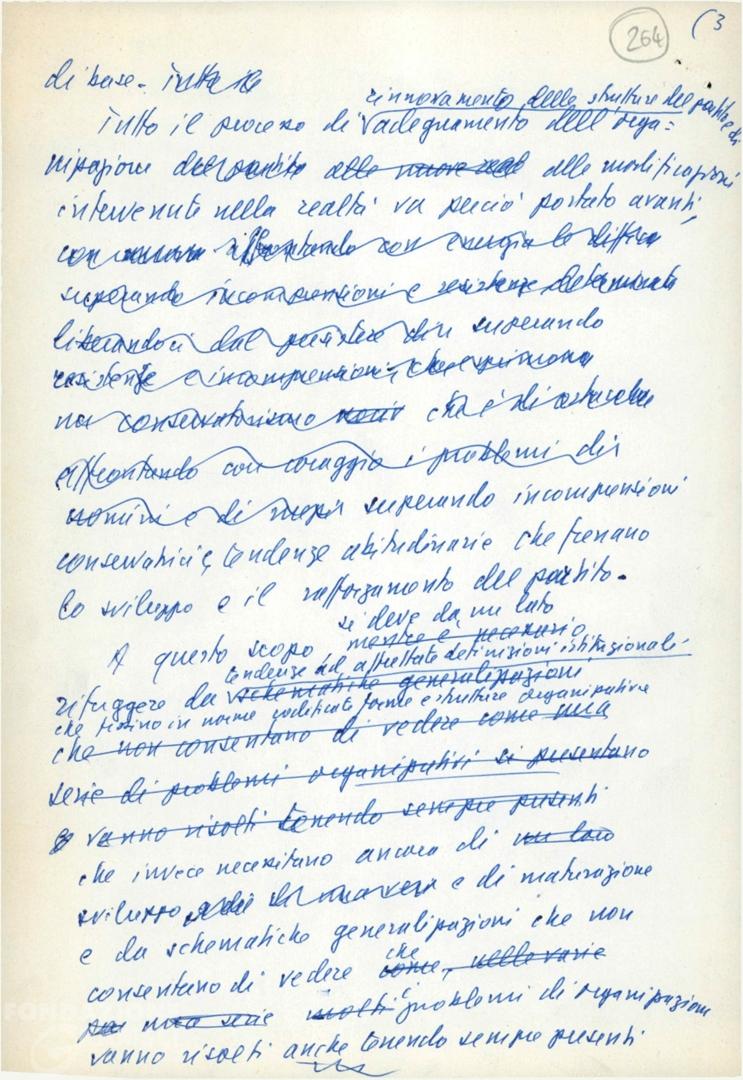 264 (3
di base. Tutto il
rinnovamento delle strutture del partito e di
Tutto il processo di adeguamento dell'orga=
nizzazione del partito alle nuove alle modificazioni
intervenute nella realtà va perciò portato avanti,
con affrontando con energia le
superando incomprensioni e resistenze determinate
liberandoci dal superando
resistenze e incomprensioni, che esprimono
un conservatorismo che è di ostacolo
affrontando con coraggio i problemi di
uomini e di mezzi superando incomprensioni
conservatrici, tendenze abitudinarie che frenano
lo sviluppo e il rafforzamento del partito.
si deve da un lato
A questo scopo, mentre è necessario
tendenze ad affrettate definizioni istituzionali
rifuggere da schematiche generalizzazioni
che fissino in norme codificate forme e strutture organizzative
che non consentano di vedere come una
serie di problemi organizzativi si presentano
e vanno risolti tenendo sempre presenti
che invece necessitano ancora di un loro
sviluppo e di maturazione
e da schematiche generalizzazioni che non
che
consentano di vedere come, nelle varie
una serie molti i problemi di organizzazione
vanno risolti anche tenendo sempre presenti